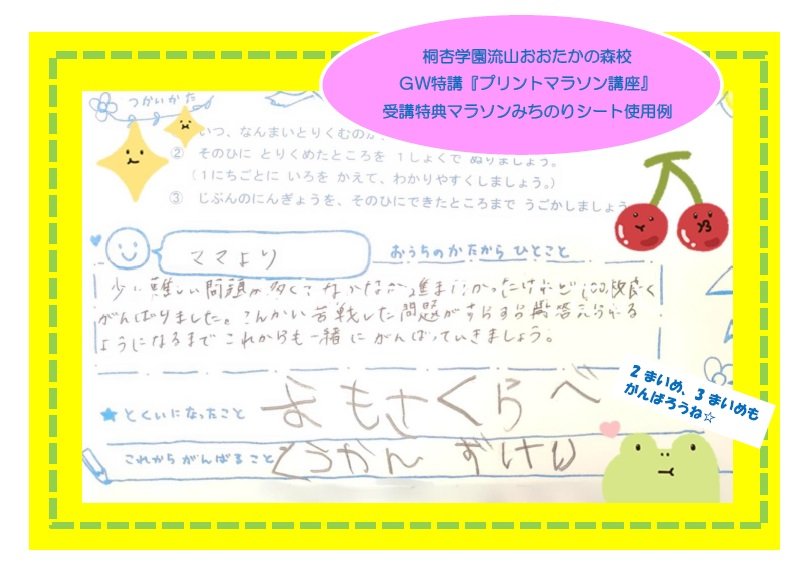 桐杏学園流山おおたかの森校
GW特講『プリントマラソン講座』
受講特典マラソンみちのりシート使用例
つかいかた
いつ、なんまいとりくむのか
② そのひに とりくめたところを 1しょくで ぬりましょう。
(1にちごとに いろを かえて、わかりやすくしましょう。)
③ じぶんのにんぎょうを、そのひにできたところまで うごかしましょう
ママより
おうちのかたから ひとこと
少し難しい問題が多くて なかなか進まなかったけれど 100枚良く
がんばりました。こんかい苦戦した問題がすらすら答えられる
ようになるまで これからも一緒に がんばっていきましょう。
★ とくいになったこと おもさくらべ
これから がんばること くうかん ずけい
2まいめ、3まいめも
がんばろうね☆